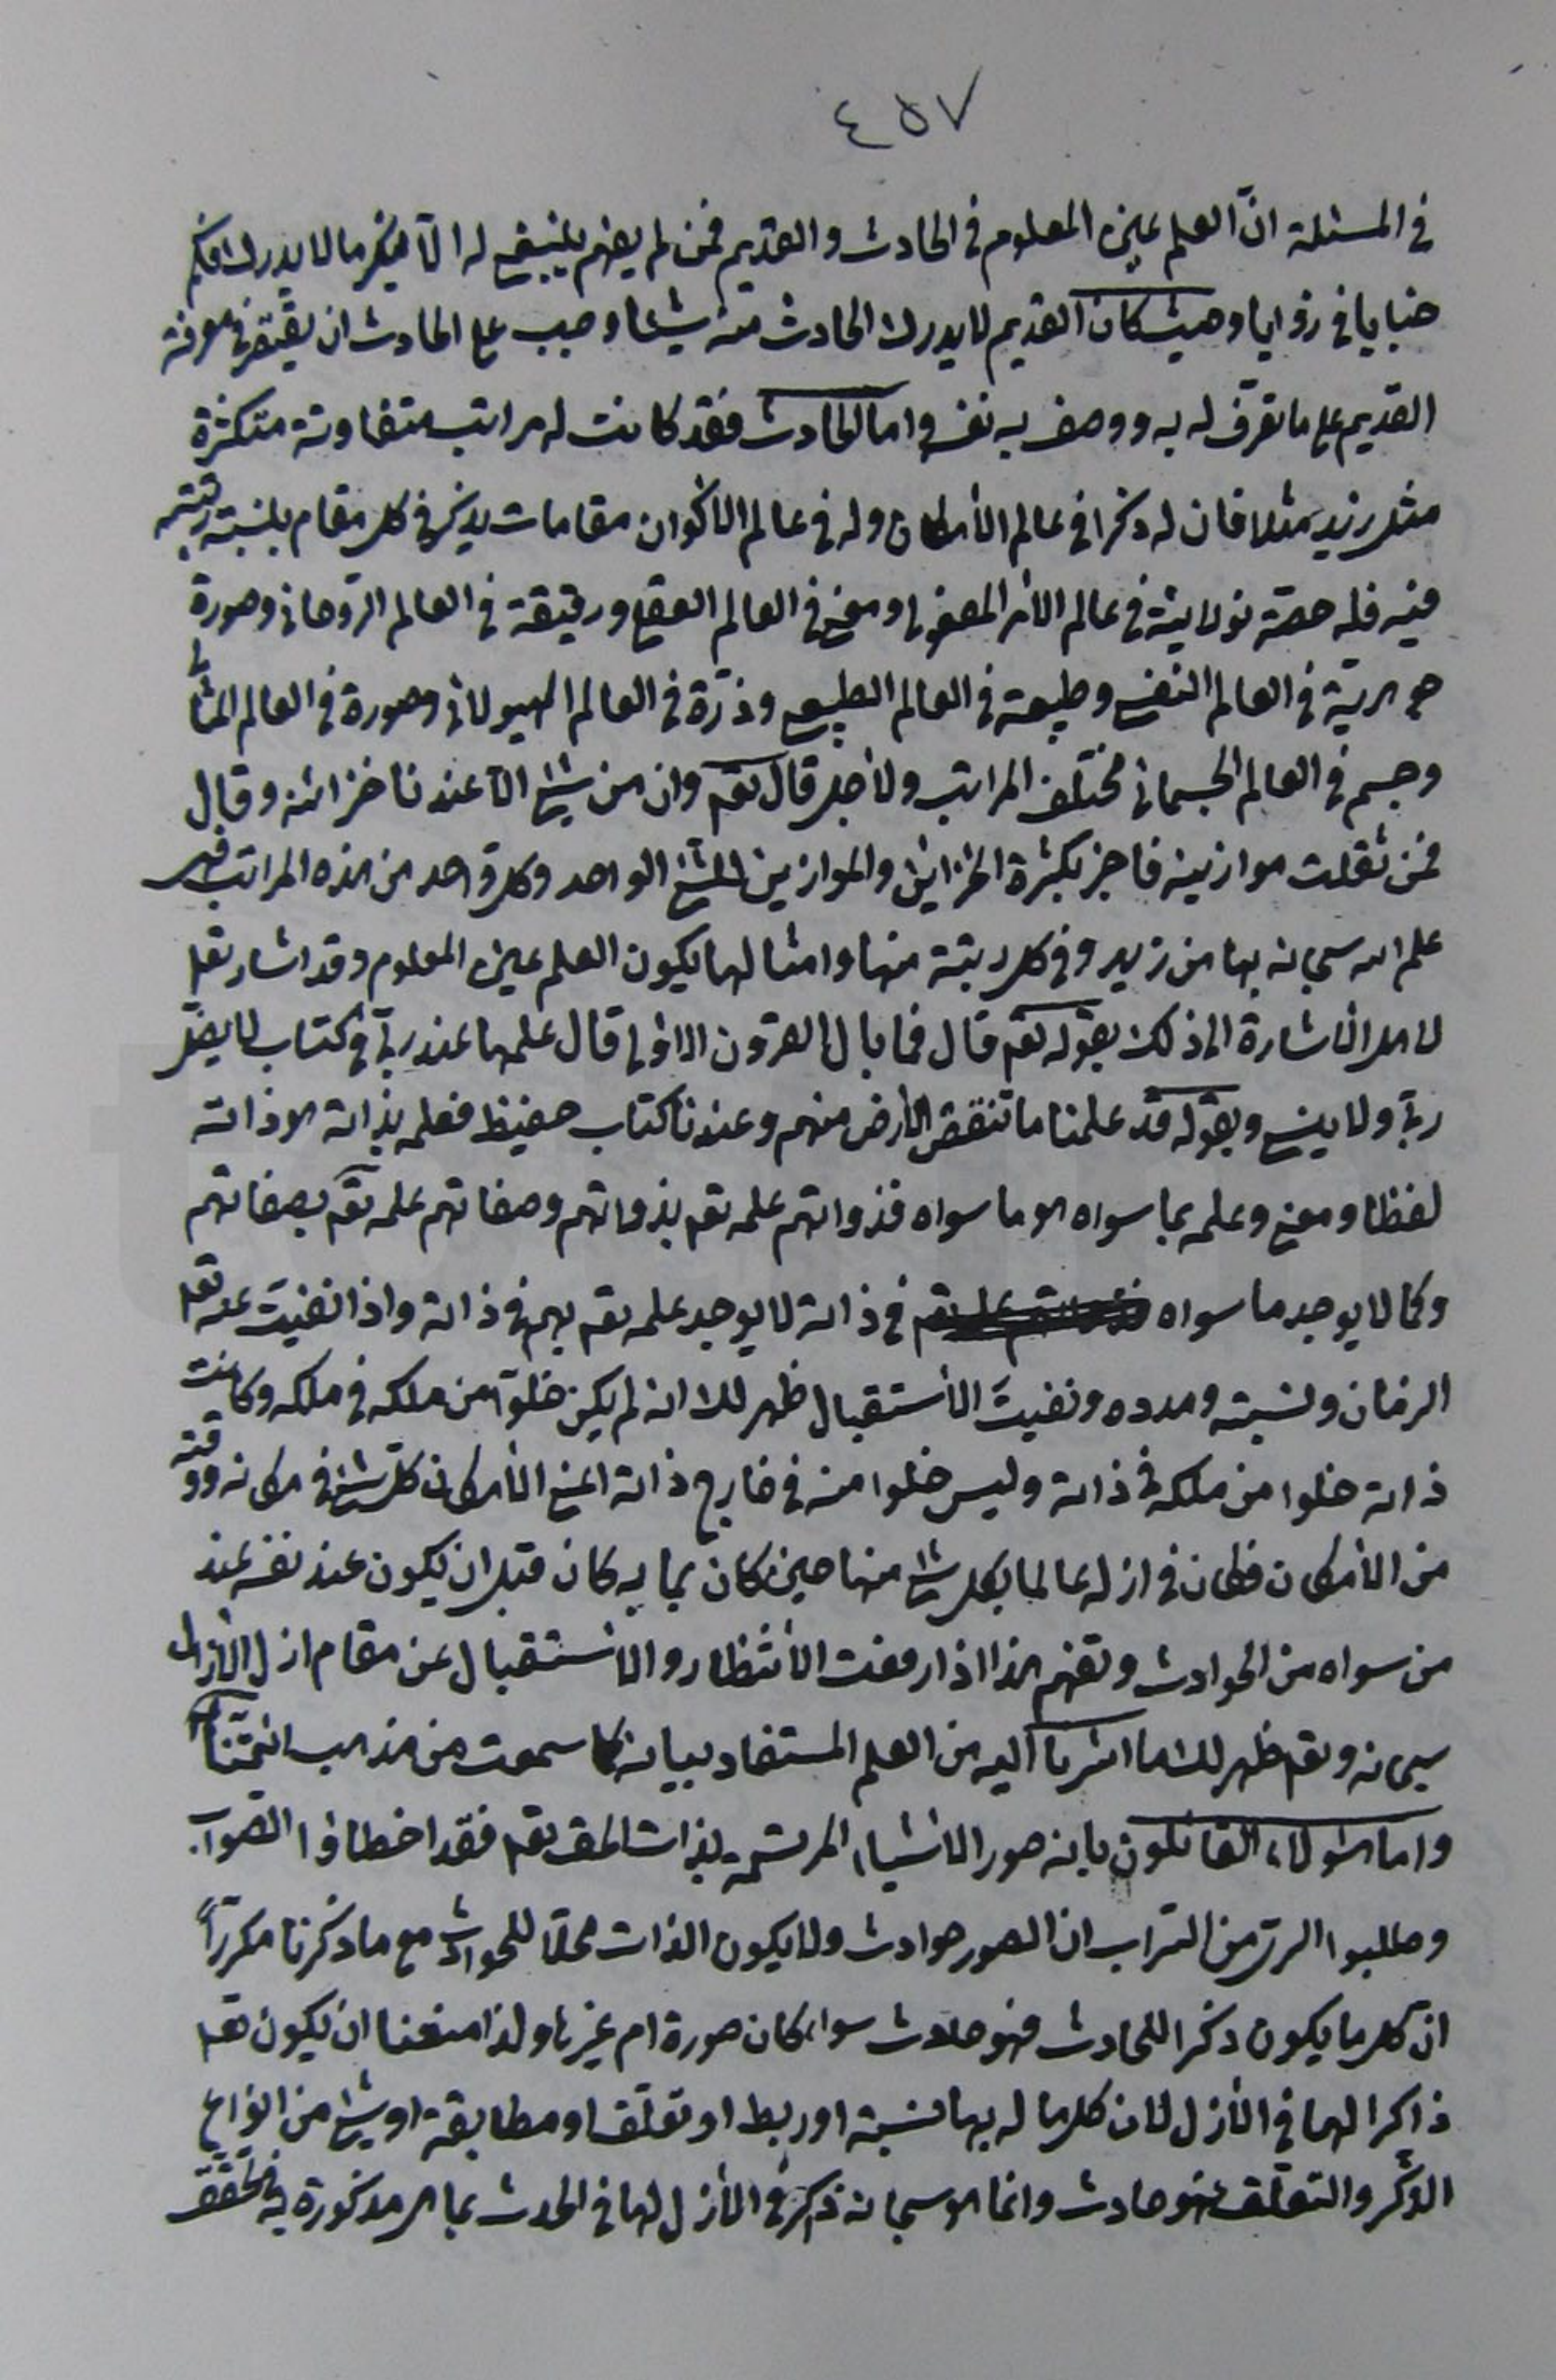 ٤٥٧
في المسئلة انّ العلم عين المعلوم في الحادث و القديم فمن لم يفهم ينبغي له الّا ينكر ما لا يدرك فكم
خبايا في زوايا و حيث كان القديم لا يدرك الحادث منه شيئا وجب على الحادث ان يقتصر في معرفة
القديم على ما تعرّف له به و وصف به نفسه و اما الحادث فقد كانت له مراتب متفاوتة متكثرة
مثل زيد مثلا فان له ذكرا في عالم الأمكان و له في عالم الاكوان مقامات يذكر في كل مقام بنسبة رتبته
فيه فله حصة نورانيّة في عالم الأمر المفعولي و معنى في العالم العقلي و رقيقة في العالم الرّوحاني و صورة
جوهريّة في العالم النفسي و طبيعة في العالم الطبيعي و ذرّة في العالم الهيولاني و صورة في العالم المثالي
و جسم في العالم الجسماني مختلف المراتب و لأجل قال تعم و ان من شئ الّا عندنا خزائنه و قال
فمن ثقلت موازينه فاخبر بكثرة الخزاين و الموازين للشئ الواحد و كل واحد من هذه المراتب فهي
علم الله سبحانه بها من زيد و في كل رتبة منها و امثالها يكون العلم عين المعلوم و قد اشار تعلى
لاهل الأشارة الى ذلك بقوله تعم قال فما بال القرون الاولى قال علمها عند ربّي في كتاب لا يضلّ
ربّي و لا ينسى و بقوله قد علمنا ما تنقص الأرض منهم و عندنا كتاب حفيظ فعلمه بذاته هو ذاته
لفظا و معنى و علمه بما سواه هو ما سواه فذواتهم علمه تعم بذواتهم و صفاتهم علمه تعم بصفاتهم
و كما لا يوجد ما سواه في ذاته لا يوجد علمه تعم بهم في ذاته و اذا نفيت عنه تعلى
الزمان و نسبته و مدده و نفيت الأستقبال ظهر لك انه لم يكن خلوّا من ملكه في ملكه و كانت
ذاته خلوا من ملكه في ذاته و ليس خلوا منه في خارج ذاته اعني الأمكان كلّ شئ في مكانه و وقته
من الأمكان فكان في ازله عالما بكل شئ منها حين كان بما به كان قبل ان يكون عند نفسه عند
من سواه من الحوادث و تفهم هذا اذا رفعت الأنتظار و الأستقبال عن مقام ازل الأزال
سبحانه و تعم ظهر لك ما اشرنا اليه من العلم المستفاد بيانه كما سمعت من مذهب ائمّتنا
و اما هؤلاء القائلون بانه صور الأشياء المرتسمة بذات الحق تعم فقد اخطاؤا الصّواب
و طلبوا الرىّ من التراب ان الصور حوادث و لا يكون الذات محلّا للحوادث مع ما ذكرنا مكرّراً
انّ كل ما يكون ذكرا للحادث فهو حادث سواء كان صورة ام غيرها و لذا منعنا ان يكون تعم
ذاكرا لها في الأزل لان كل ما له بها نسبة او ربط او تعلّق او مطابقة او شئ من انواع
الذّكر و التعلّق فهو حادث و انما هو سبحانه ذكر في الأزل لها في الحدث بما هي مذكورة به